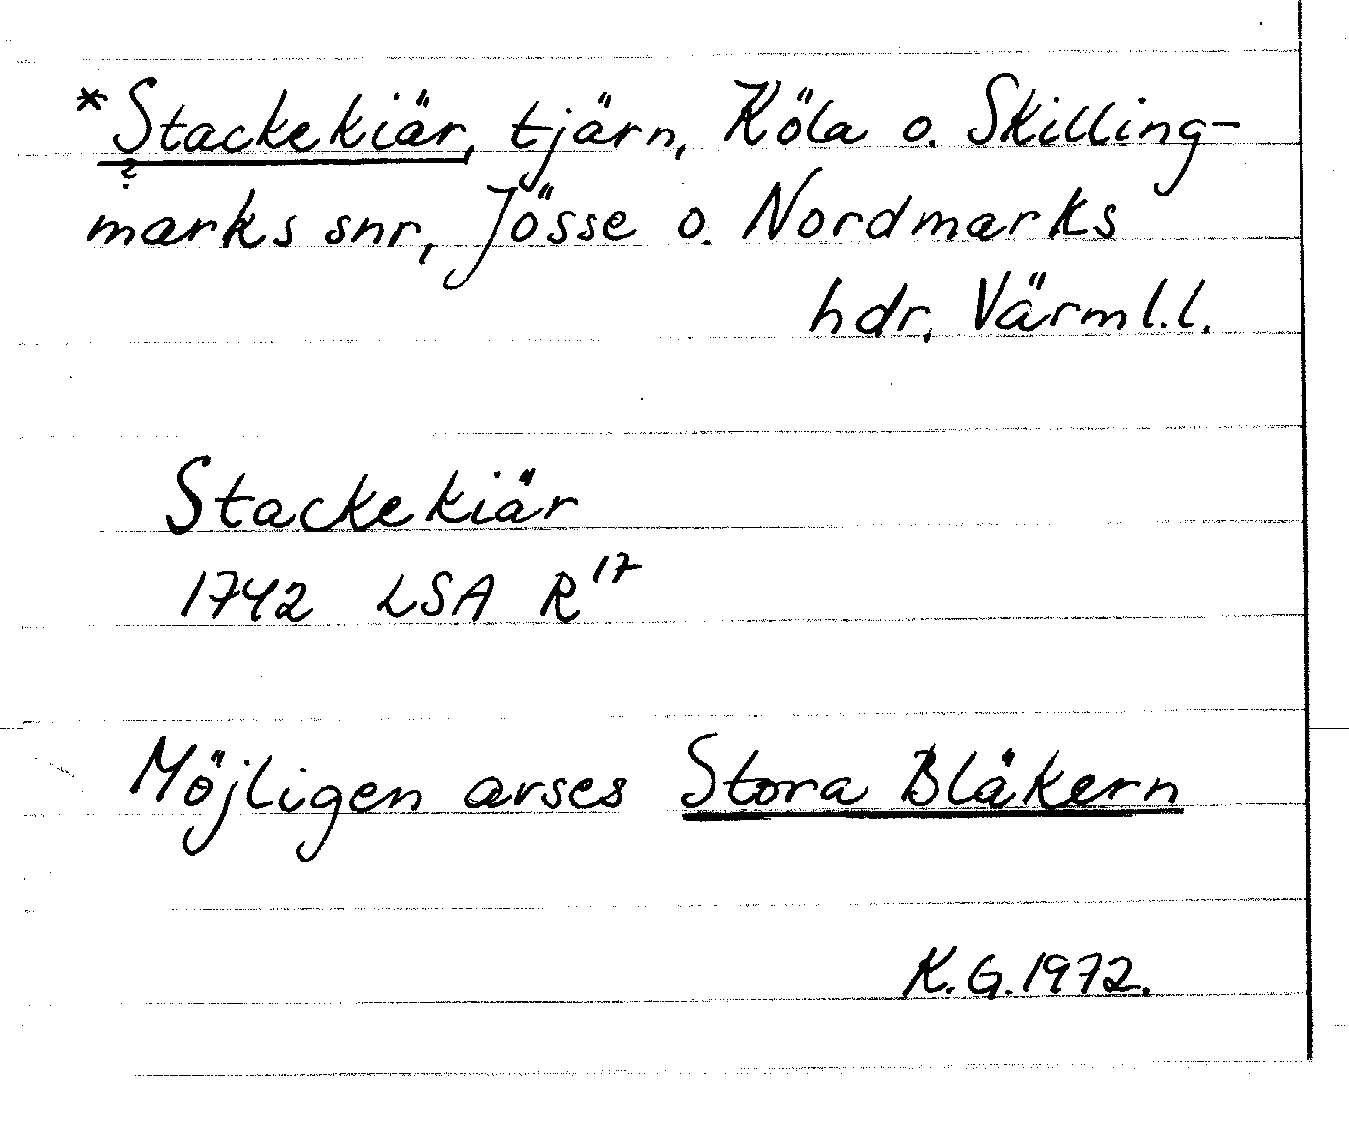 *Stackekiär, tjärn, Köla o. Skilling-
?
marks snr, Jösse o. Nordmarks
hdr, Värml.l.
Stackekiär
1742 LSA R¹⁷
Möjligen avses Stora Blåkern
K.G.1972.